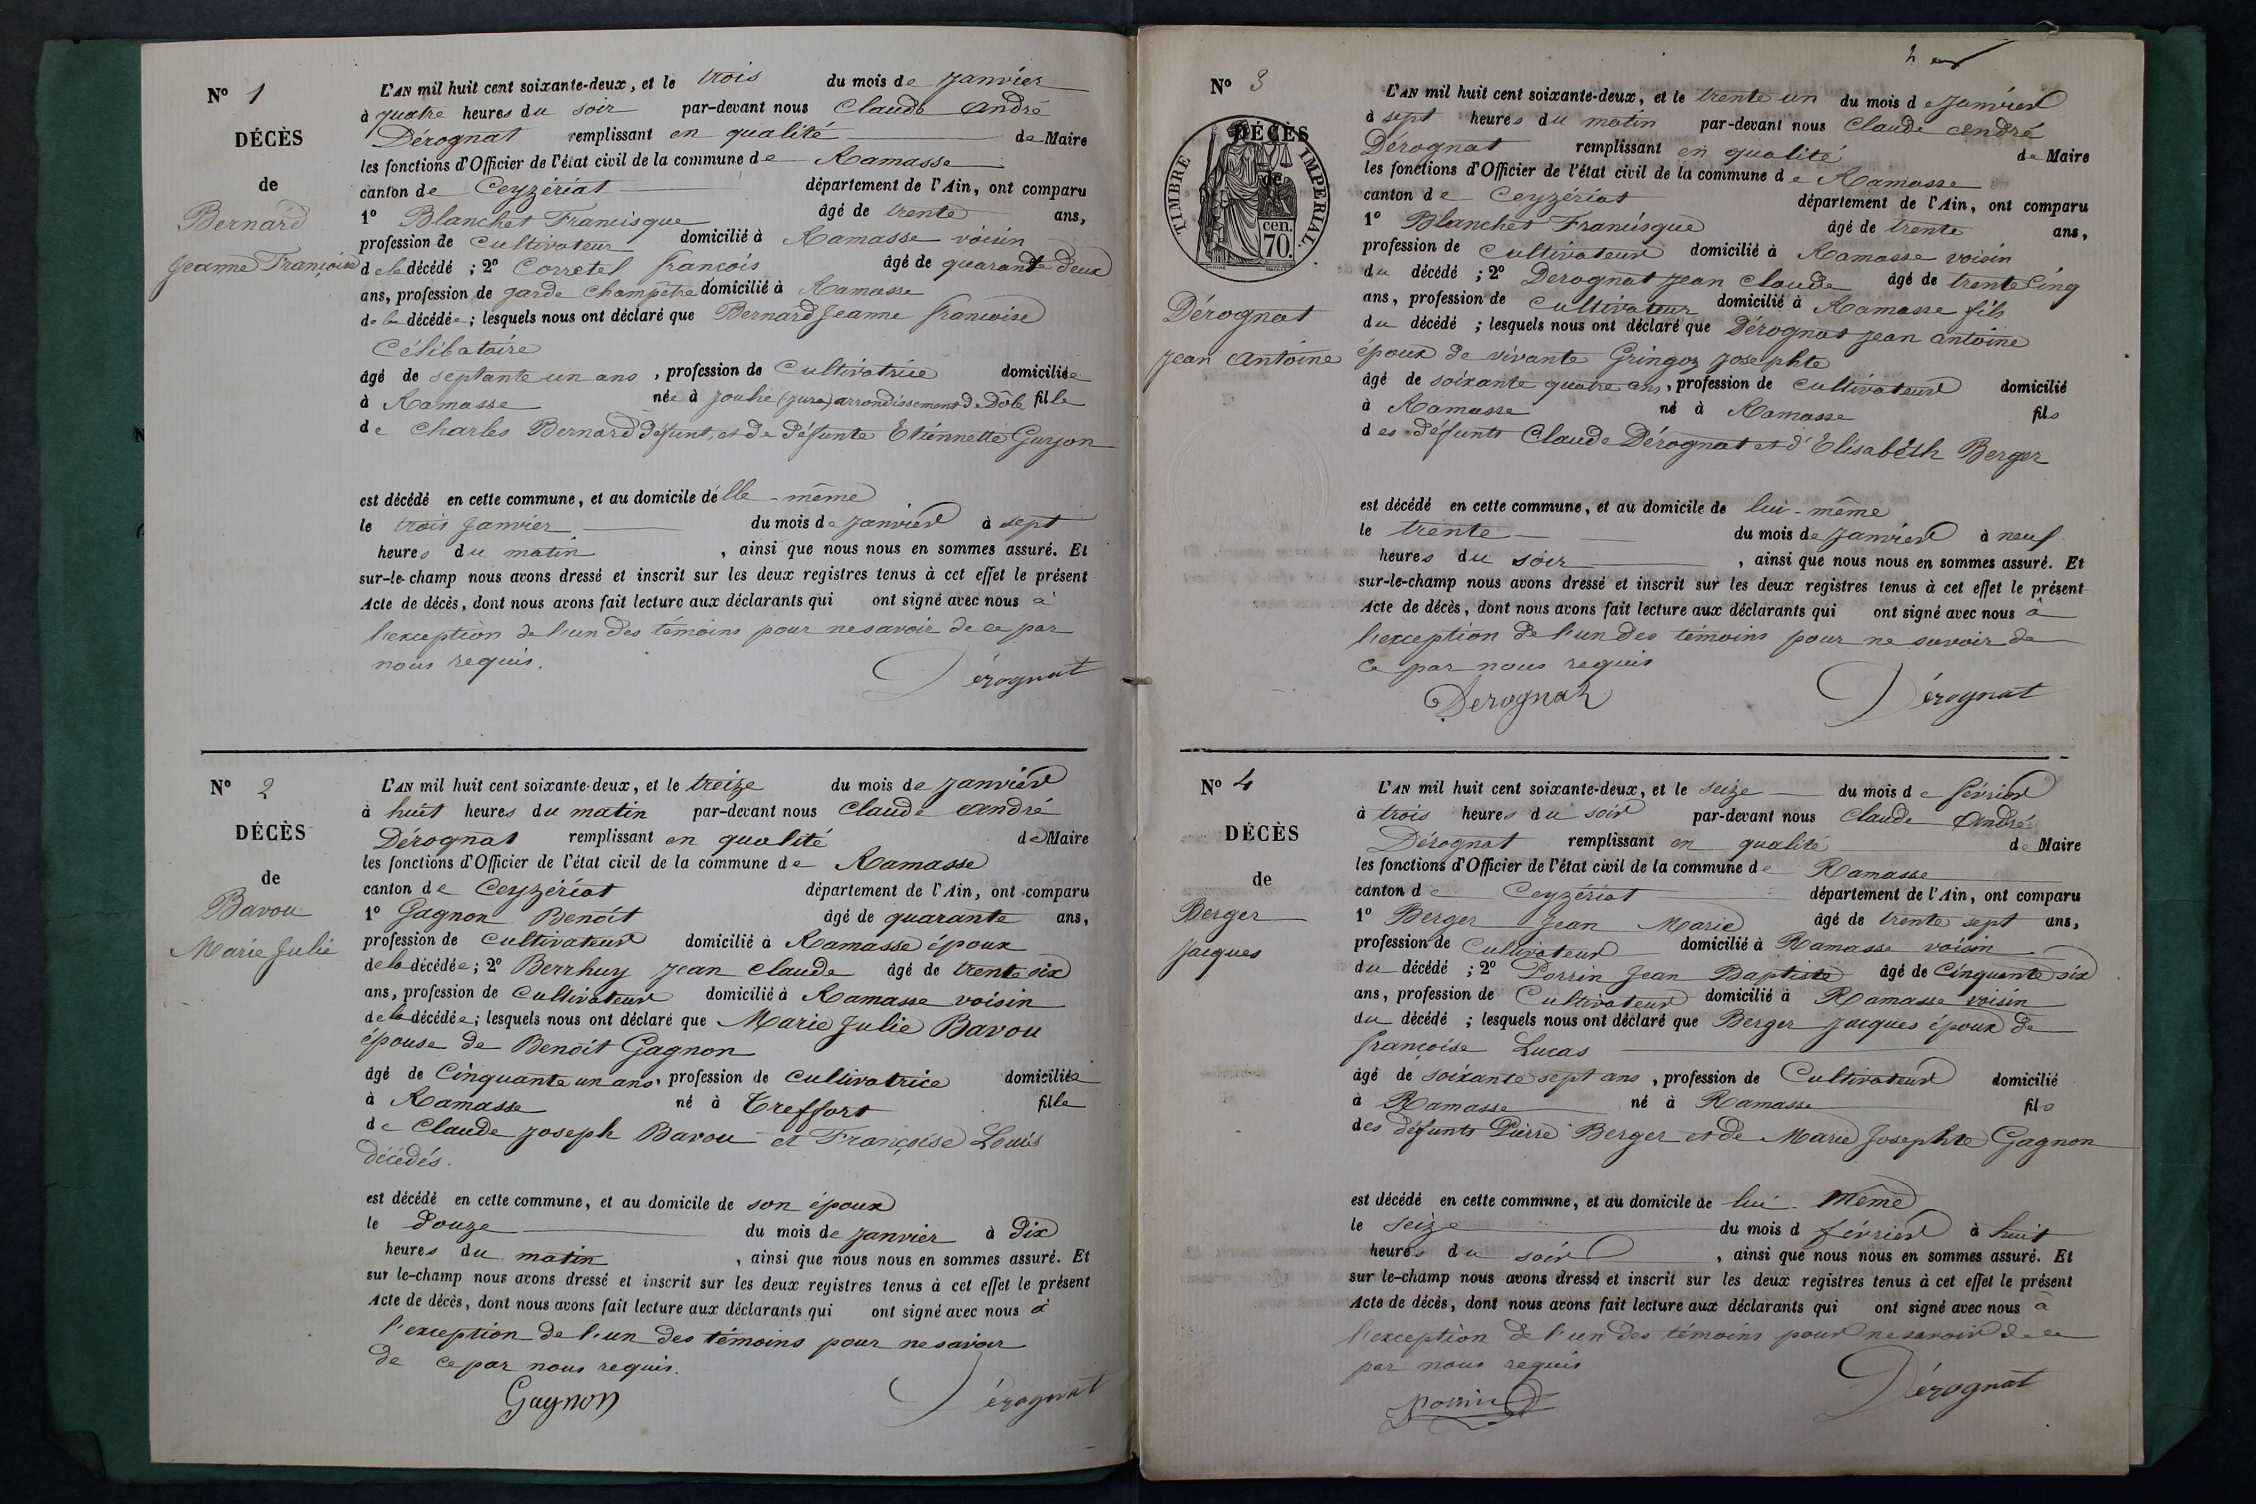 N° 1
DÉCÈS
de
Bernard
Jeanne Françoise
L'AN mil huit cent soixante-deux, et le trois du mois de janvier
à quatre heures du soir par-devant nous Claude André
Dérognat remplissant en qualité de Maire
les fonctions d'Officier de l'état civil de la commune de Ramasse
canton de Ceyzériat département de l'Ain, ont comparu
1° Blanchet Francisque âgé de trente ans,
profession de cultivateur domicilié à Ramasse voisin
de la décédé ; 2° Corretel françois âgé de quarante deux
ans, profession de garde champêtre domicilié à Ramasse
de la décédée ; lesquels nous ont déclaré que Bernard Jeanne francoise
Célibataire
âgé de septante un ans, profession de Cultivatrice domiciliée
à Ramasse née à Jouhe (jura) arrondissement de Dôle fille
de Charles Bernard défunt, et de défunte Etiénnette Guyon
est décédé en cette commune, et au domicile délle-même
le trois janvier du mois de janvier à sept
heures du matin, ainsi que nous nous en sommes assuré. Et
sur-le-champ nous avons dressé et inscrit sur les deux registres tenus à cet effet le présent
Acte de décès, dont nous avons fait lecture aux déclarants qui ont signé avec nous à
l'exception de l'un des témoins pour ne savoir de ce par
nous requis.
Dérognat
N° 2
DÉCÈS
de
Bavou
Marie Julie
L'AN mil huit cent soixante-deux, et le treize du mois de janvier
à huit heures du matin par-devant nous Claude André
Dérognat remplissant en qualité de Maire
les fonctions d'Officier de l'état civil de la commune de Ramasse
canton de Ceyzériat département de l'Ain, ont comparu
1° Gagnon Benoît âgé de quarante ans,
profession de cultivateur domicilié à Ramasse époux
de la décédée ; 2° Berrhuy jean claude âgé de trente six
ans, profession de Cultivateur domicilié à Ramasse voisin
de la décédée ; lesquels nous ont déclaré que Marie Julie Bavou
épouse de Benoît Gagnon
âgé de Cinquante un ans, profession de cultivatrice domiciliée
à Ramasse né à Treffort fille
de Claude joseph Bavou et Françoise Louis
décédés.
est décédé en cette commune, et au domicile de son époux
le douze du mois de janvier à dix
heures du matin, ainsi que nous nous en sommes assuré. Et
sur le-champ nous avons dressé et inscrit sur les deux registres tenus à cet effet le présent
Acte de décès, dont nous avons fait lecture aux déclarants qui ont signé avec nous à
l'exception de l'un des témoins pour ne savoir
de ce par nous requis.
Gagnon Dérognat
N° 3
DÉCÈS
de
TIMBRE IMPERIAL.
cen.
70.
Dérognat
jean Antoine
L'AN mil huit cent soixante-deux, et le trente un du mois de janvier
à sept heures du matin par-devant nous Claude André
Dérognat remplissant en qualité de Maire
les fonctions d'Officier de l'état civil de la commune de Ramasse
canton de Ceyzériat département de l'Ain, ont comparu
1° Blanchet Francisque âgé de trente ans,
profession de Cultivateur domicilié à Ramasse voisin
du décédé ; 2° Derognat jean claude âgé de trente Cinq
ans, profession de cultivateur domicilié à Ramasse fils
du décédé ; lesquels nous ont déclaré que Dérognat jean antoine
époux de vivante Gringoz josephte
âgé de soixante quatre ans, profession de cultivateur domicilié
à Ramasse né à Ramasse fils
des défunts Claude Dérognat et d'Elisabéth Berger
est décédé en cette commune, et au domicile de lui-même
le trente du mois de janvier à neuf
heures du soir, ainsi que nous nous en sommes assuré. Et
sur-le-champ nous avons dressé et inscrit sur les deux registres tenus à cet effet le présent
Acte de décès, dont nous avons fait lecture aux déclarants qui ont signé avec nous à
l'exception de l'un des témoins pour ne savoir de
ce par nous requis
Derognat Dérognat
N° 4
DÉCÈS
de
Berger
jacques
L'AN mil huit cent soixante-deux, et le seize du mois de février
à trois heures du soir par-devant nous Claude André
Dérognat remplissant en qualité de Maire
les fonctions d'Officier de l'état civil de la commune de Ramasse
canton de Ceyzériat département de l'Ain, ont comparu
1° Berger Jean Marie âgé de trente sept ans,
profession de Cultivateur domicilié à Ramasse voisin
du décédé ; 2° Porrin Jean Baptiste âgé de Cinquante six
ans, profession de Cultivateur domicilié à Ramasse voisin
du décédé ; lesquels nous ont déclaré que Berger jacques époux de
françoise Lucas
âgé de soixante sept ans, profession de Cultivateur domicilié
à Ramasse né à Ramasse fils
des défunts Pierre Berger et de Marie Josephte Gagnon
est décédé en cette commune, et au domicile de lui-Même
le seize du mois d février à huit
heures du soir, ainsi que nous nous en sommes assuré. Et
sur le-champ nous avons dressé et inscrit sur les deux registres tenus à cet effet le présent
Acte de décès, dont nous avons fait lecture aux déclarants qui ont signé avec nous à
l'exception de l'un des témoins pour ne savoir de ce
par nous requis
Porrin Dérognat